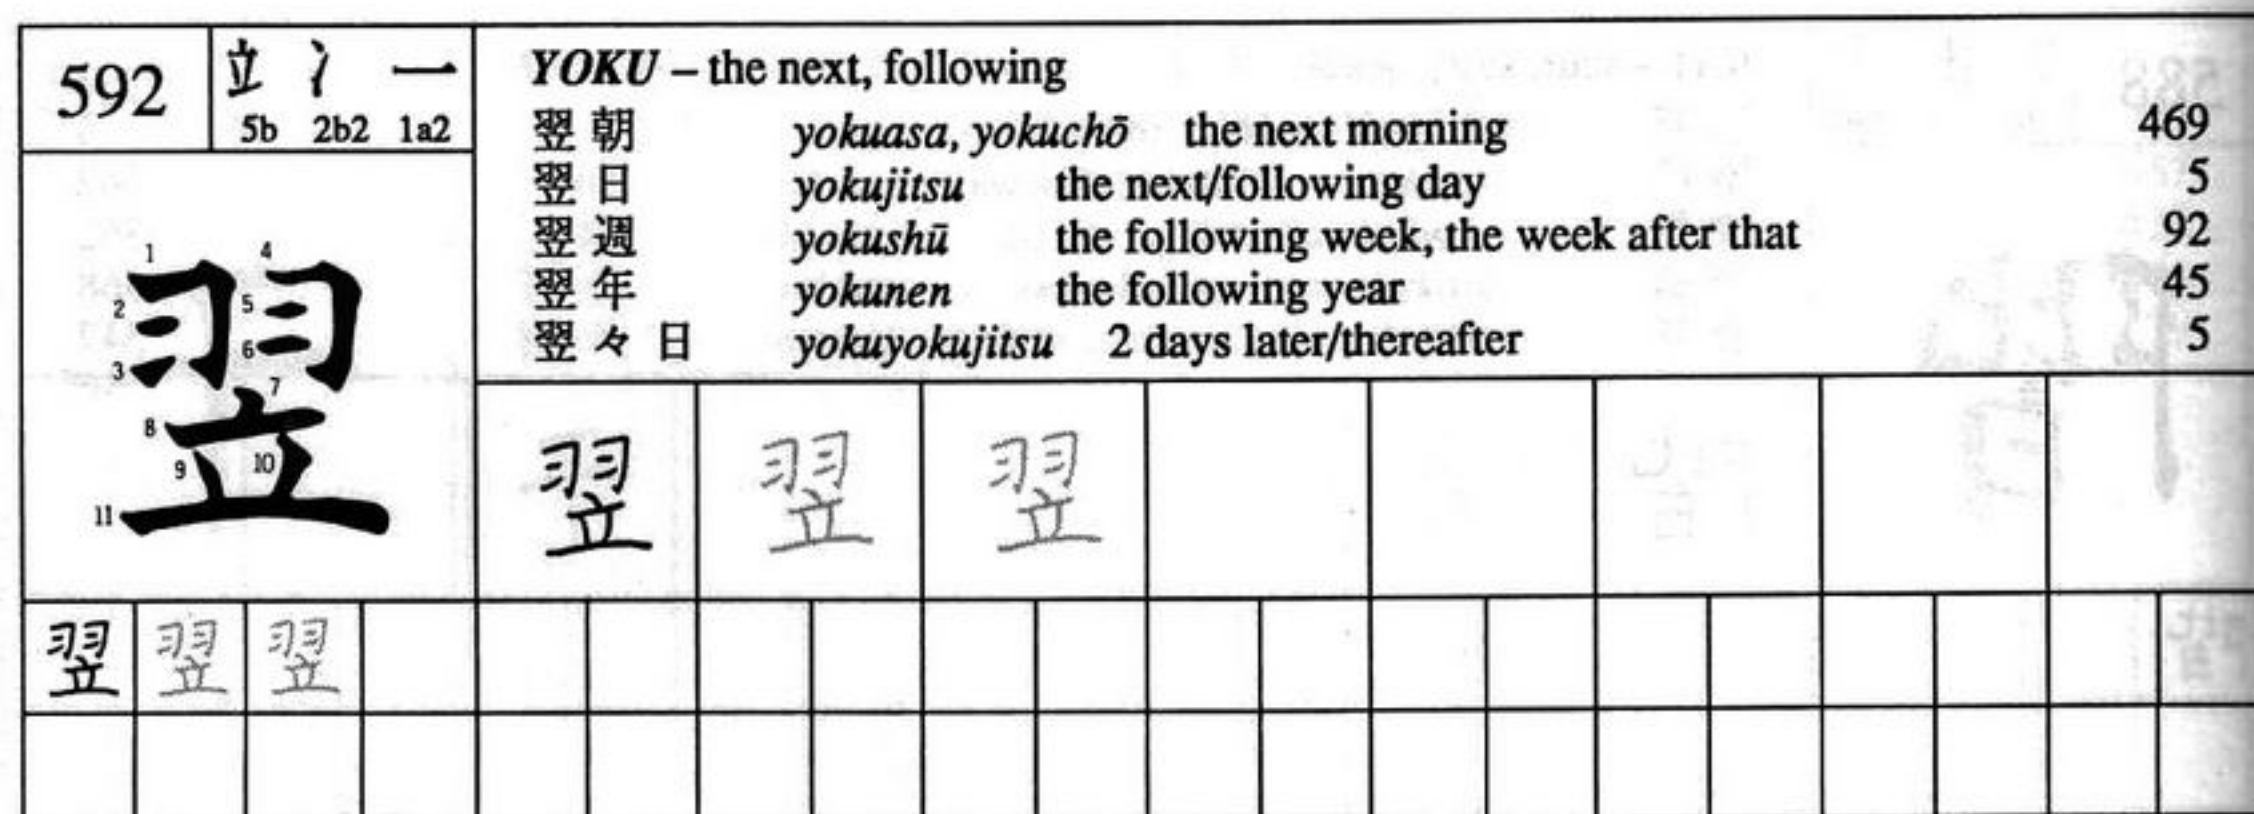 592
立 冫 一
5b 2b2 1a2
YOKU – the next, following
翌朝 yokuasa, yokuchō the next morning 469
翌日 yokujitsu the next/following day 5
翌週 yokushū the following week, the week after that 92
翌年 yokunen the following year 45
翌々日 yokuyokujitsu 2 days later/thereafter 5
翌
1 2 3 4 5 6 7 8 9 10 11
翌 翌 翌
翌 翌 翌